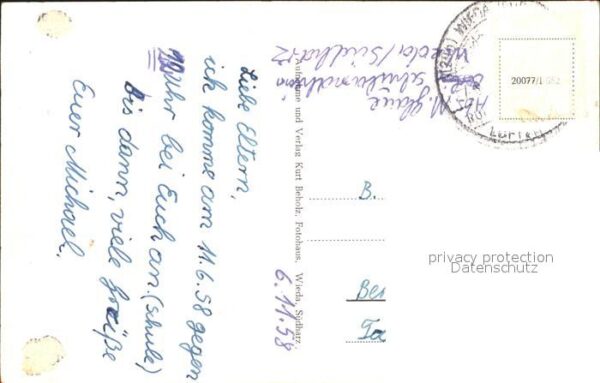 Liebe Eltern,
ich komme am 11.6.58 gegen
Uhr bei Euch an. (Schule)
bis dann, viele Grüße
Euer Michael.
Abs. M.
Schullandheim
Wieda / Südharz
Aufnahme und Verlag Kurt Beholz, Fotohaus, Wieda, Südharz.
6.11.58
B.
Ber
Ta
20077/1-662
WIEDA
privacy protection
Datenschutz